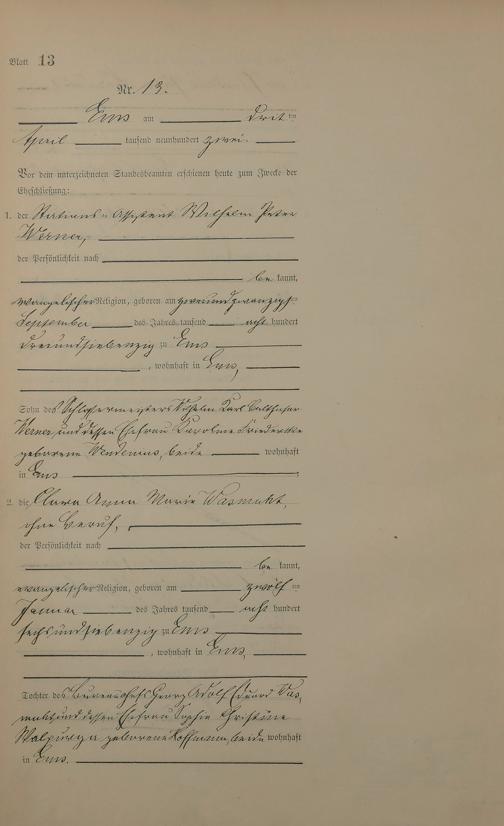 Blatt 13
Nr. 13.
Ems am drit ten
April tausend neunhundert zwei.
Vor dem unterzeichneten Standesbeamten erschienen heute zum Zwecke der
Eheschließung:
1. der Stations-Assistent Wilhelm Peter
Werner,
der Persönlichkeit nach
be kannt,
evangelischer Religion, geboren am zweiundzwanzigst
September des Jahres tausend acht hundert
dreiundsiebenzig zu Ems
, wohnhaft in Ems,
Sohn des Schlossermeisters Wilhelm Karl Balthasar
Werner, und dessen Ehefrau Karoline Friederike
geborene, beide wohnhaft
in Ems
2. die Clara Anna Marie Wasmuht,
ohne Beruf,
der Persönlichkeit nach
be kannt,
evangelischer Religion, geboren am zwölf ten
Januar des Jahres tausend acht hundert
sechsundsiebenzig zu Ems
, wohnhaft in Ems,
Tochter des Bureauchefs Georg Adolf Eduard Was,
muht, und dessen Ehefrau Sophie Christine
Walpurga geborene Hoffmann, beide wohnhaft
in Ems.